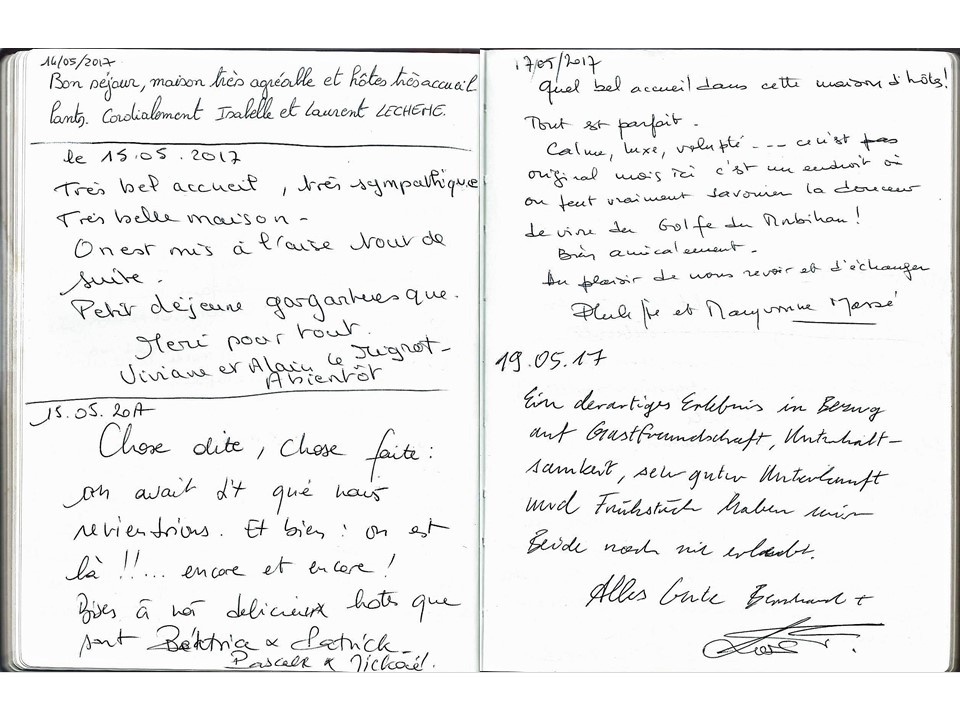 14/05/2017
Bon séjour, maison très agréable et hôtes très accueil
lants. Cordialement Isabelle et Laurent LECHEME.
le 15.05.2017
Très bel accueil, très sympathique
Très belle maison -
On est mis à l'aise tout de
suite.
Petit déjeune gargantuesque.
Merci pour tout.
Viviane et Alain Le
A bientôt
15.05.2017
Chose dite, chose faite :
on avait dit qué nous
reviendrions. Et bien : on est
là !!... encore et encore !
Bises à nos délicieux hotes que
sont Béatrice & Patrick -
Pascale & Mickaël.
17/05/2017
Quel bel accueil dans cette maison d'hôtes !
Tout est parfait.
Calme, luxe, volupté --- ce n'est pas
original mais ici c'est un endroit où
on peut vraiment savourer la douceur
de vivre du Golfe du Morbihan !
Bien amicalement.
Au plaisir de nous revoir et d'échanger
et Maryvonne Massé
19.05.17
Ein derartiges Erlebnis in Bezug
auf Gastfreundschaft, Unterhalt-
samkeit, sehr guter Unterkunft
und Frühstück haben wir
Beide noch nie erlebt.
Alles Gute Bernhard +